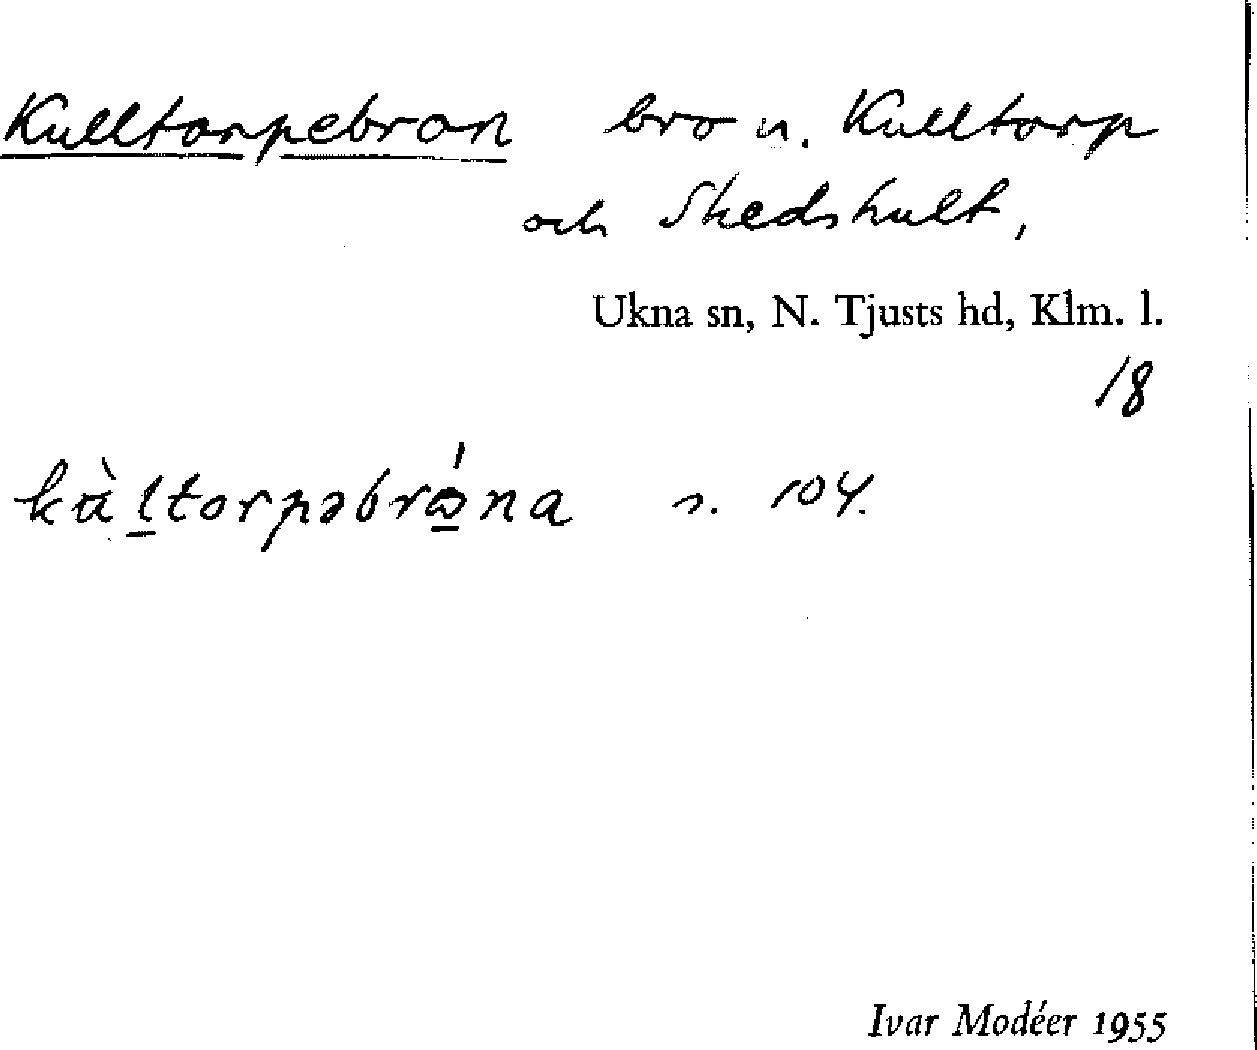 Kulltorpebron bro n. Kulltorp
och Skedshult,
Ukna sn, N. Tjusts hd, Klm. l.
18
s. 104.
Ivar Modéer 1955